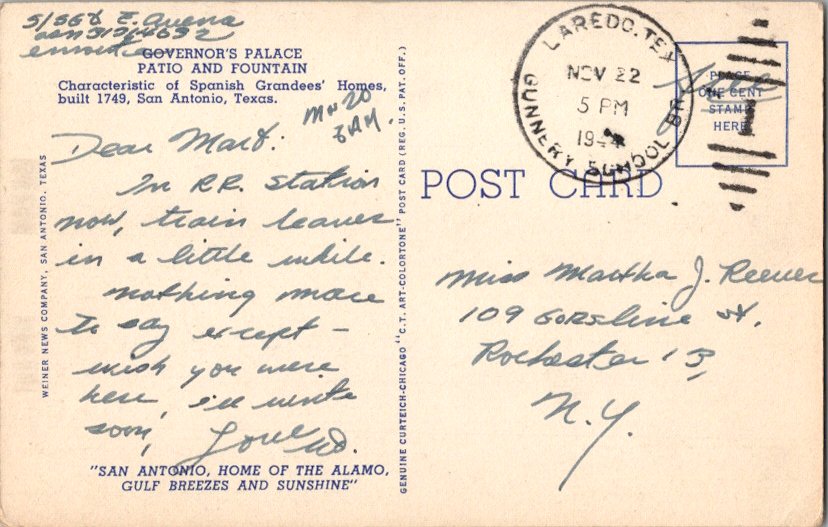 S/Sgt E.
enroute
GOVERNOR'S PALACE
PATIO AND FOUNTAIN
Characteristic of Spanish Grandees' Homes,
built 1749, San Antonio, Texas.
8 AM.
Dear Mart:
In R.R. station
now, train leaves
in a little while.
nothing more
to say except –
wish you were
here, i'll write
soon,
Love
"SAN ANTONIO, HOME OF THE ALAMO,
GULF BREEZES AND SUNSHINE"
WEINER NEWS COMPANY, SAN ANTONIO, TEXAS
GENUINE CURTEICH-CHICAGO "C.T. ART-COLORTONE" POST CARD (REG. U.S. PAT. OFF.)
POST CARD
LAREDO, TEX
NOV 22
5 PM
1944
GUNNERY SCHOOL BR.
PLACE
ONE CENT
STAMP
HERE
Free
Miss Martha J. Reever
109 Gorsline St.
Rochester 13,
N.Y.